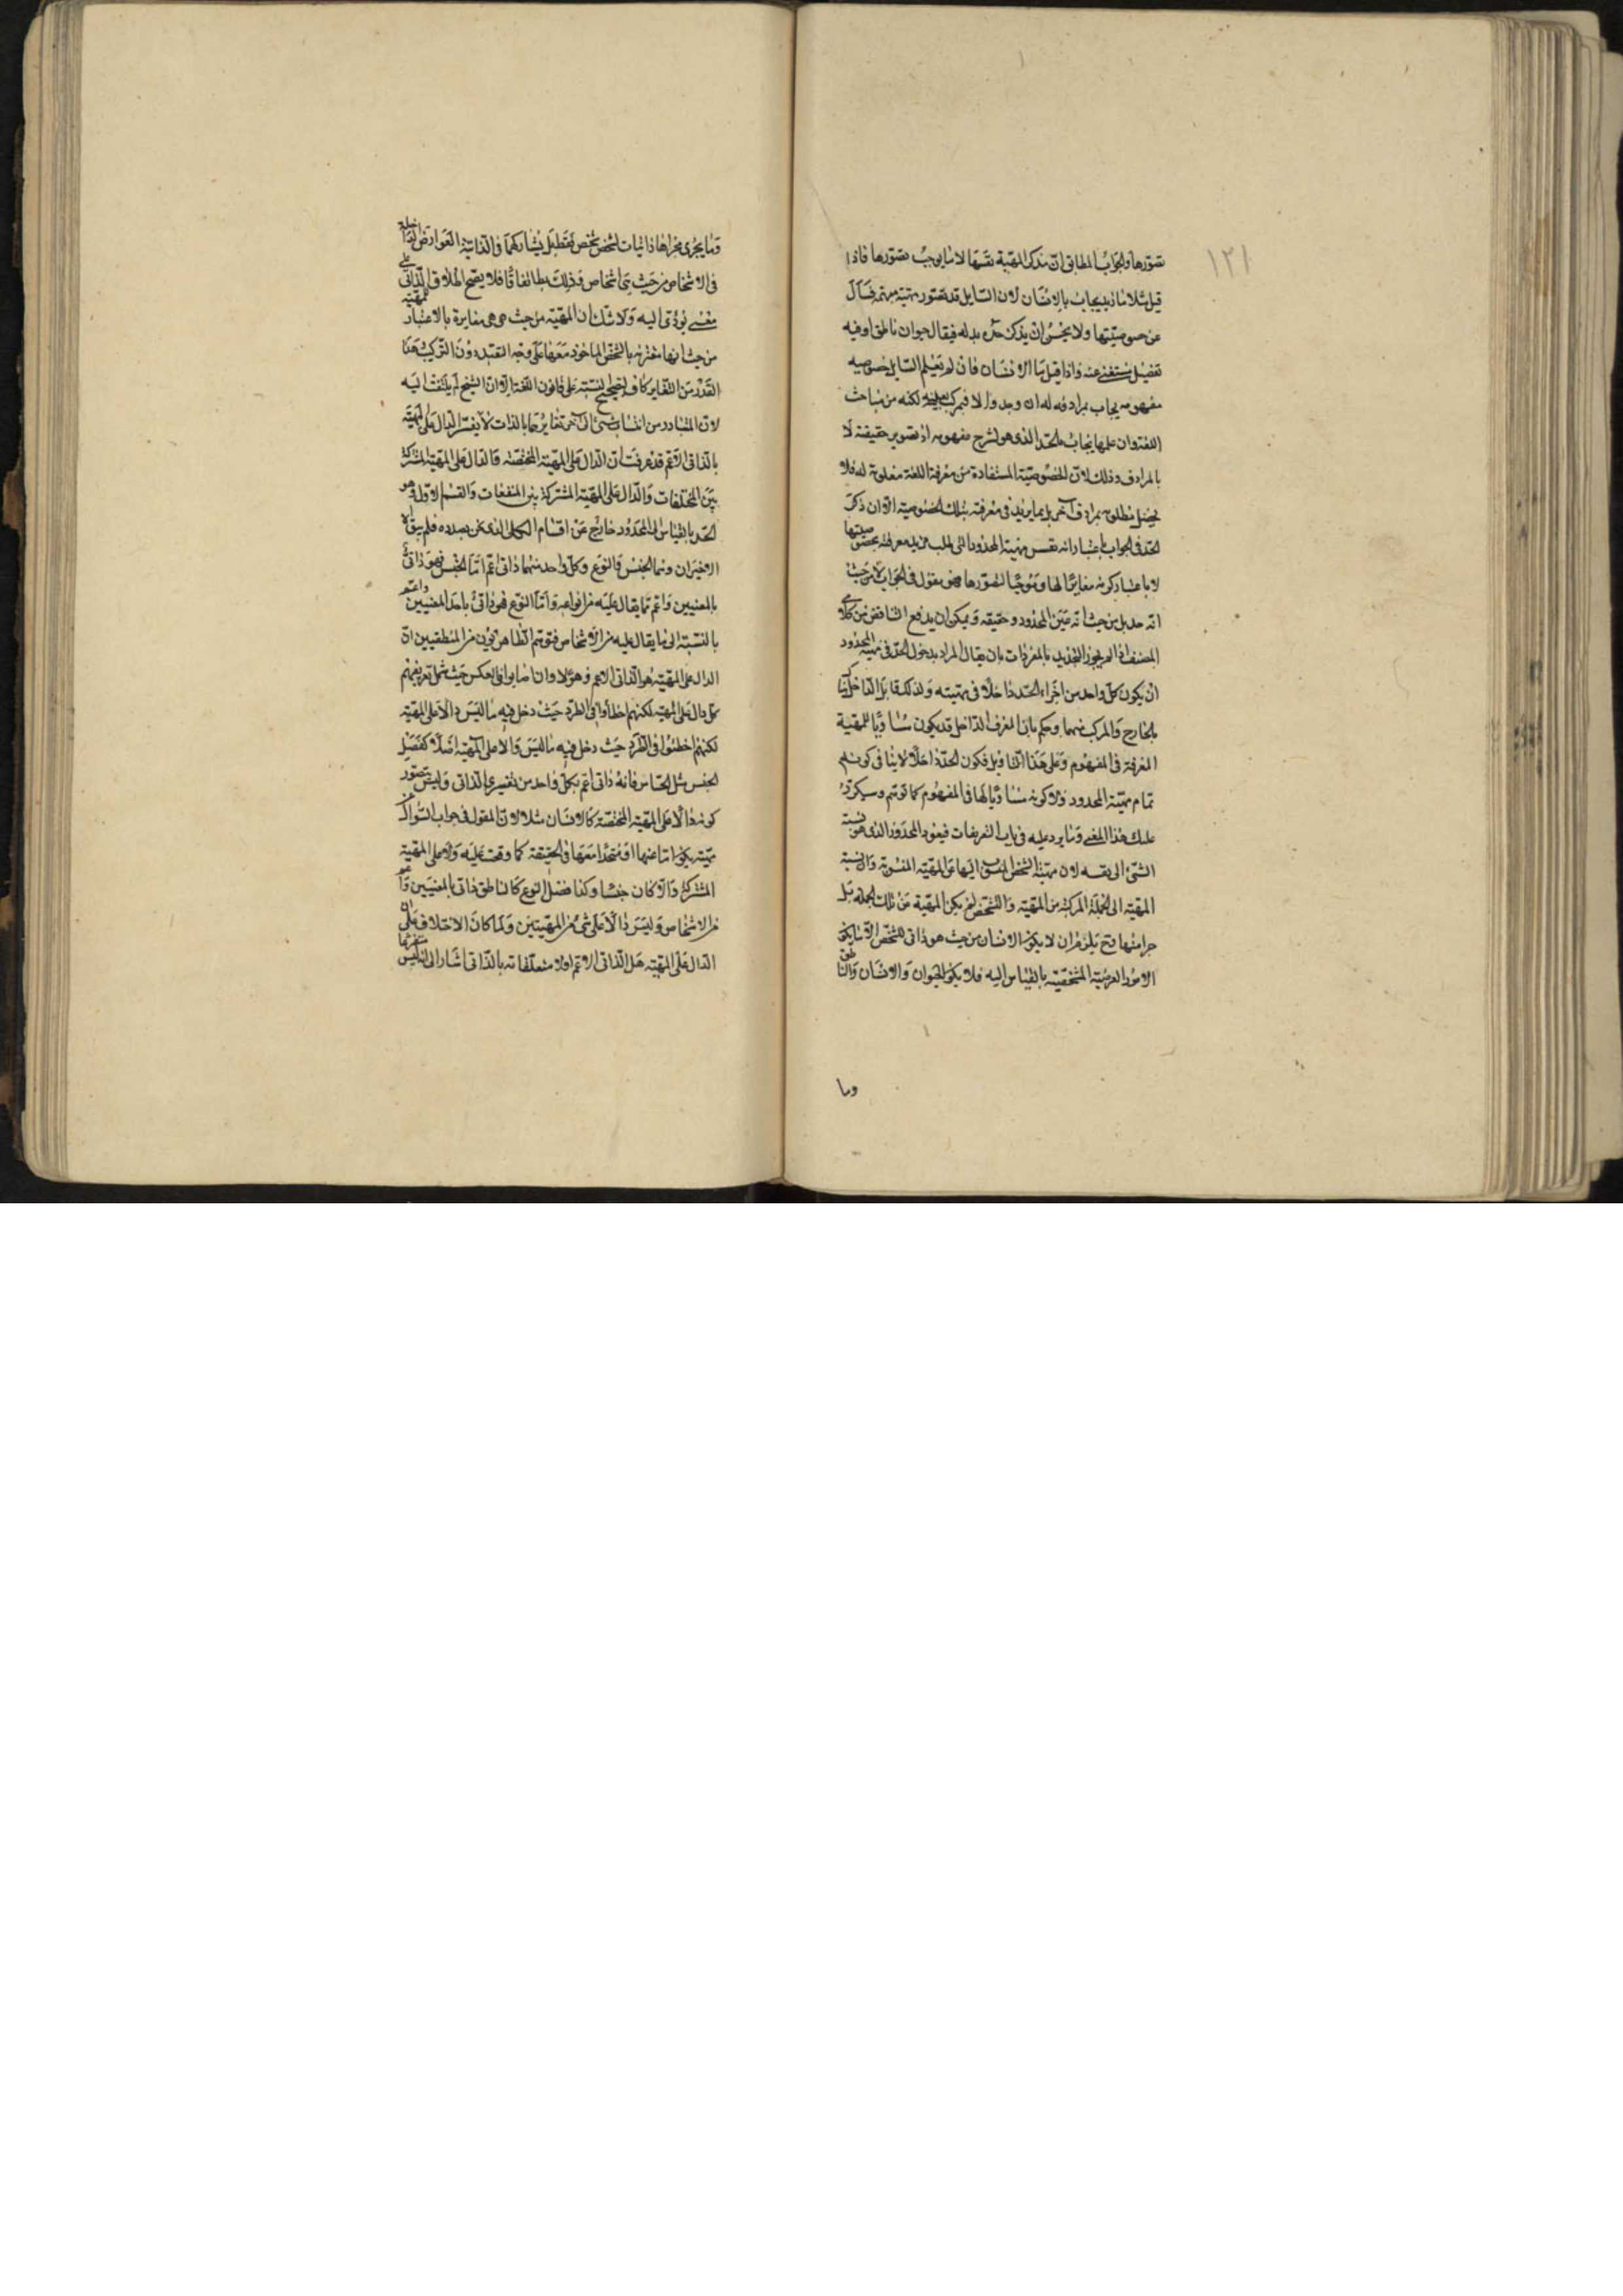 ١٢١
تصورها والجواب المطابق ان يذكر المهية نفسها لا ما يوجب تصورها فاذا
قيل مثلا ما زيد يجاب بالانسان لان السايل قد تصور مهية مبهمة فسأل
عن خصوصيتها ولا يحسن ان يذكر حده بدله فيقال حيوان ناطق اذ فيه
تفصيل مستغنى عنه واذا قيل ما الانسان فان لم يعلم السايل خصوصية
مفهومه يجاب بمرادف له ان وجد والا فبمركب لكنه من مباحث
اللغة وان علمها يجاب بالحد الذى هو لشرح مفهومه او تصوير حقيقته لا
بالمرادف وذلك لان الخصوصية المستفادة من معرفة اللغة معلومة له فلا
يحصل مطلوبه بمرادف آخر بل بما يزيد فى معرفة تلك الخصوصية الا ان ذكر
الحد فى الجواب باعتبار انه نفس مهية المحدود التى طلب مزيد معرفة بخصوصيتها
لا باعتبار كونه مغايرا لها وموجبا لتصورها فهو مقول فى الجواب لا من حيث
انه حد بل من حيث انه عين المحدود وحقيقته ويمكن ان يدفع التناقض من كلامى
المصنف اذا لم يجوز التحديد بالمفردات بان يقال المراد بدخول الحد فى مهية المحدود
ان يكون كل واحد من اجزاء الحد داخلا فى مهيته ولذلك قابل الداخل
بالخارج والمركب منهما وحكم بان المعرف الداخل قد يكون مساويا للمهية
المعرفة فى المفهوم وعلى هذا التاويل فكون الحد داخلا لا ينافى كونه
تمام مهية المحدود ولا كونه مساويا لها فى المفهوم كما توهم وسيكرر
عليك هذا المعنى وما يرد عليه فى باب التعريفات فيعود المحذور الذى هو نسبة
الشئ الى نفسه لان مهية الشخص المنسوب اليها عين المهية المنسوبة والا نسبة
المهية الى الجملة المركبة من المهية والتشخص لم يكن المهية من تلك الجملة بل
جزا منها فح يلزم ان لا يكون الانسان من حيث هو ذاتى للشخص الا ما يكون
الامور العرضية المشخصة بالقياس اليه فلا يكون الحيوان والانسان والناطق
وما
وما يجرى مجراها ذاتيات لشخص شخص فقط بل يشاركها فى الذاتية العوارض الداخلة
فى الاشخاص من حيث هى اشخاص وذلك بط اتفاقا فلا يصح اطلاق الذاتى على
معنى يؤدى اليه ولا شك ان المهية من حيث هى هى مغايرة بالاعتبار للمهية
من حيث انها مقترنة بالتشخص الماخوذ معها على وجه التقييد دون التركيب وهذا
القدر من التغاير كاف لتصحيح النسبة على قانون اللغة الا ان الشيخ لم يلتفت اليه
لان المتبادر من انتساب شئ الى آخر تغايرهما بالذات لا يفسر الدال على المهية
بالذاتى الاعم قد عرفت ان الدال على المهية المختصة والدال على المهية المشتركة
بين المختلفات والدال على المهية المشتركة بين المتفقات والقسم الاول وهو
الحد بالقياس الى المحدود خارج عن اقسام الكلى الذى نحن بصدده فلم يبق الا
الاخيران وهما الجنس والنوع وكل واحد منهما ذاتى اعم اما الجنس فهو ذاتى
بالمعنيين واعم مما يقال عليه من انواعه واما النوع فهو ذاتى باحد المعنيين واعم
بالنسبة الى ما يقال عليه من الاشخاص فتوهم الظاهريون من المنطقيين ان
الدال على المهية هو الذاتى الاعم وهؤلاء وان اصابوا فى العكس حيث شمل تعريفهم
كل دال على المهية لكنهم اخطأوا فى الطرد حيث دخل فيه ما ليس دالا على المهية
لكنهم اخطئوا فى الطرد حيث دخل فيه ما ليس دالا على المهية اصلا كفصل
الجنس مثل الحساس فانه ذاتى اعم بكل واحد من تفسيرى الذاتى وليس يتصور
كونه دالا على المهية المختصة كالانسان مثلا لان المقول فى جواب السؤال عن
مهيته يكون اما عينها او متحدا معها فى الحقيقة كما وقفت عليه ولا على المهية
المشتركة والا كان جنسا وكذا فصل النوع كالناطق ذاتى بالمعنيين واعم
من الاشخاص وليس دالا على شئ من المهيتين ولما كان الاختلاف فى ان
الدال على المهية هل الذاتى الاعم او لا متعلقا به بالذاتى اشار الى